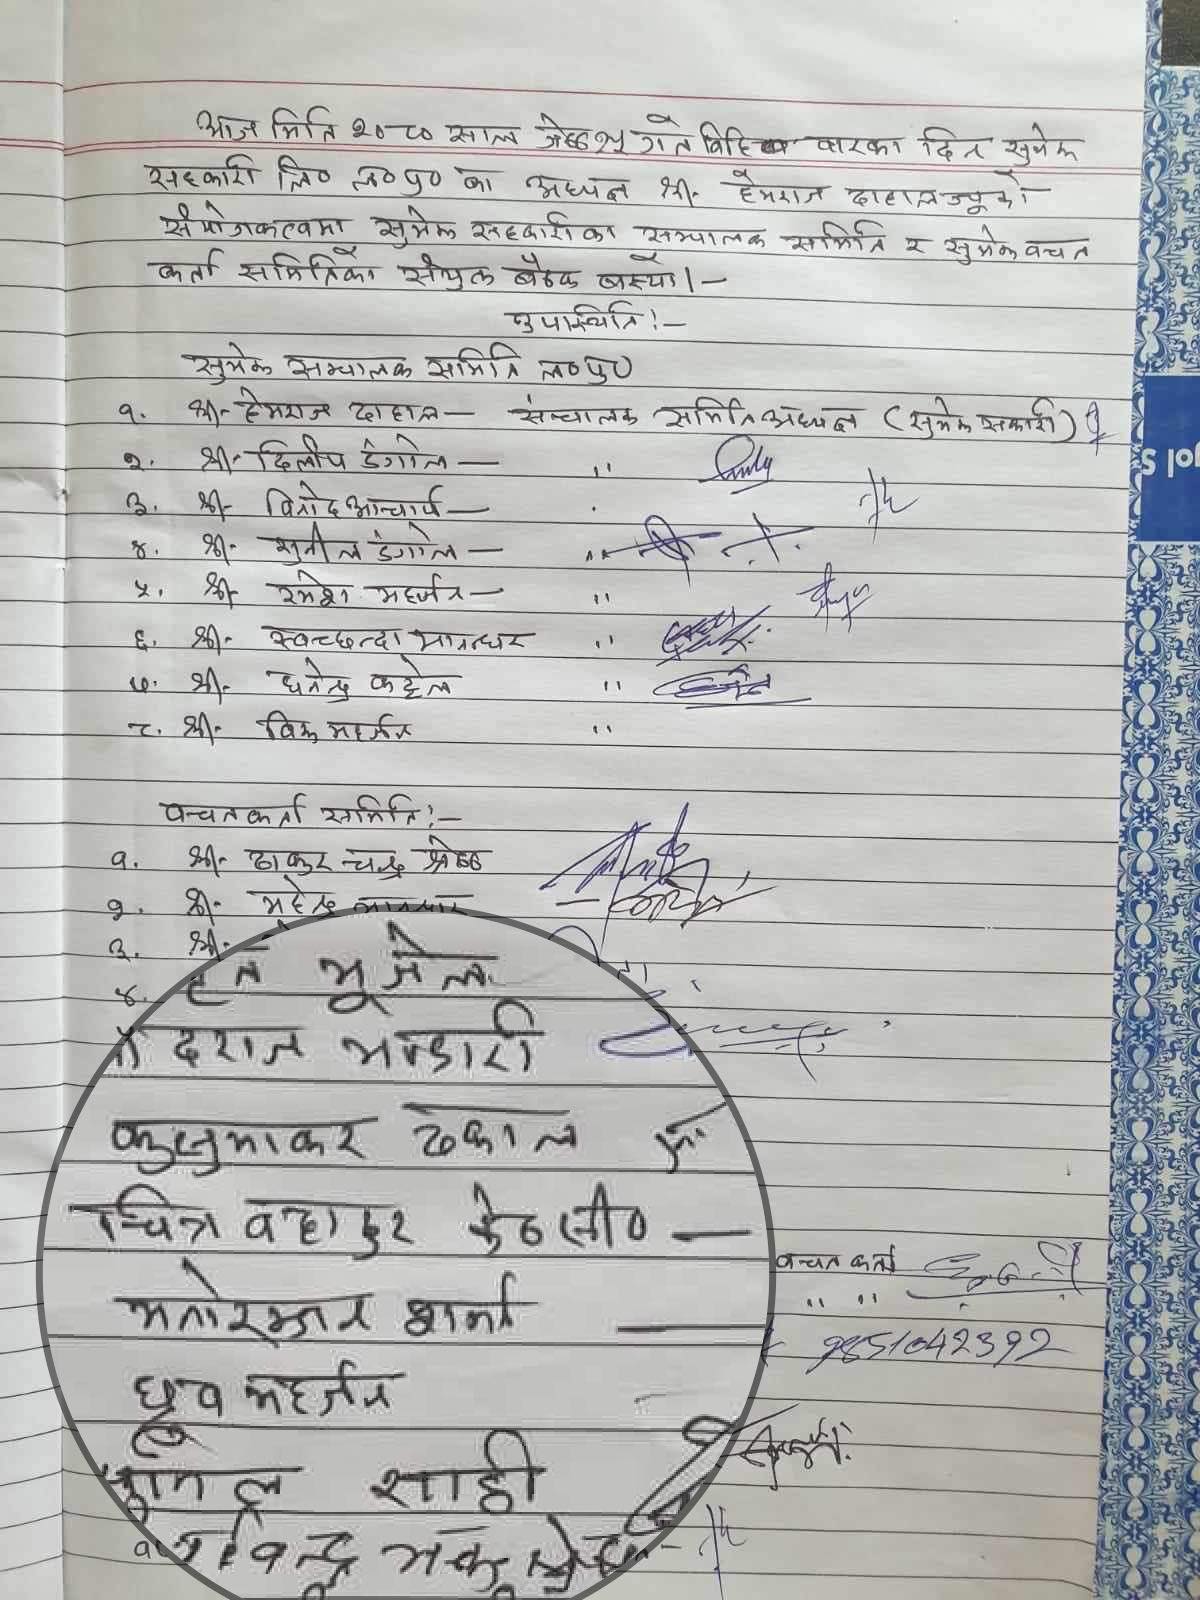 आज मिति २०८० साल जेष्ठ २५ गते विहिवारका दिन सुमेरु
सहकारी लि० ल०पु० का अध्यक्ष श्री हेमराज दाहालज्यूको
संयोजकत्वमा सुमेरु सहकारीका सञ्चालक समिति र सुमेरु वचत
कर्ता समितिको संयुक्त बैठक बस्यो।-
उपस्थिति:-
सुमेरु सञ्चालक समिति ल०पु०
१. श्री- हेमराज दाहाल- संञ्चालक समिति अध्यक्ष (सुमेरु सकारी)
२. श्री- दिलीप डंगोल- ''
३. श्री- विनोद आचार्य-
४. श्री- सुनील डंगोल- ''
५. श्री- रमेश महर्जन- ''
६. श्री- स्वच्छन्दा मानन्धर ''
७. श्री- घनेन्द्र कट्टेल ''
८. श्री- विरु महर्जन ''
वचतकर्ता समिति:-
१. श्री- ठाकुर चन्द्र श्रेष्ठ
२. श्री- महेन्द्र
३. श्री-
४. भूजेल
भण्डारी
कुसुमाकर ढकाल
चित्र वहादुर के०सी० - वचत कर्ता
मनोरञ्जन शर्मा - '' ''
9851042392
ध्रुव महर्जन
शाही